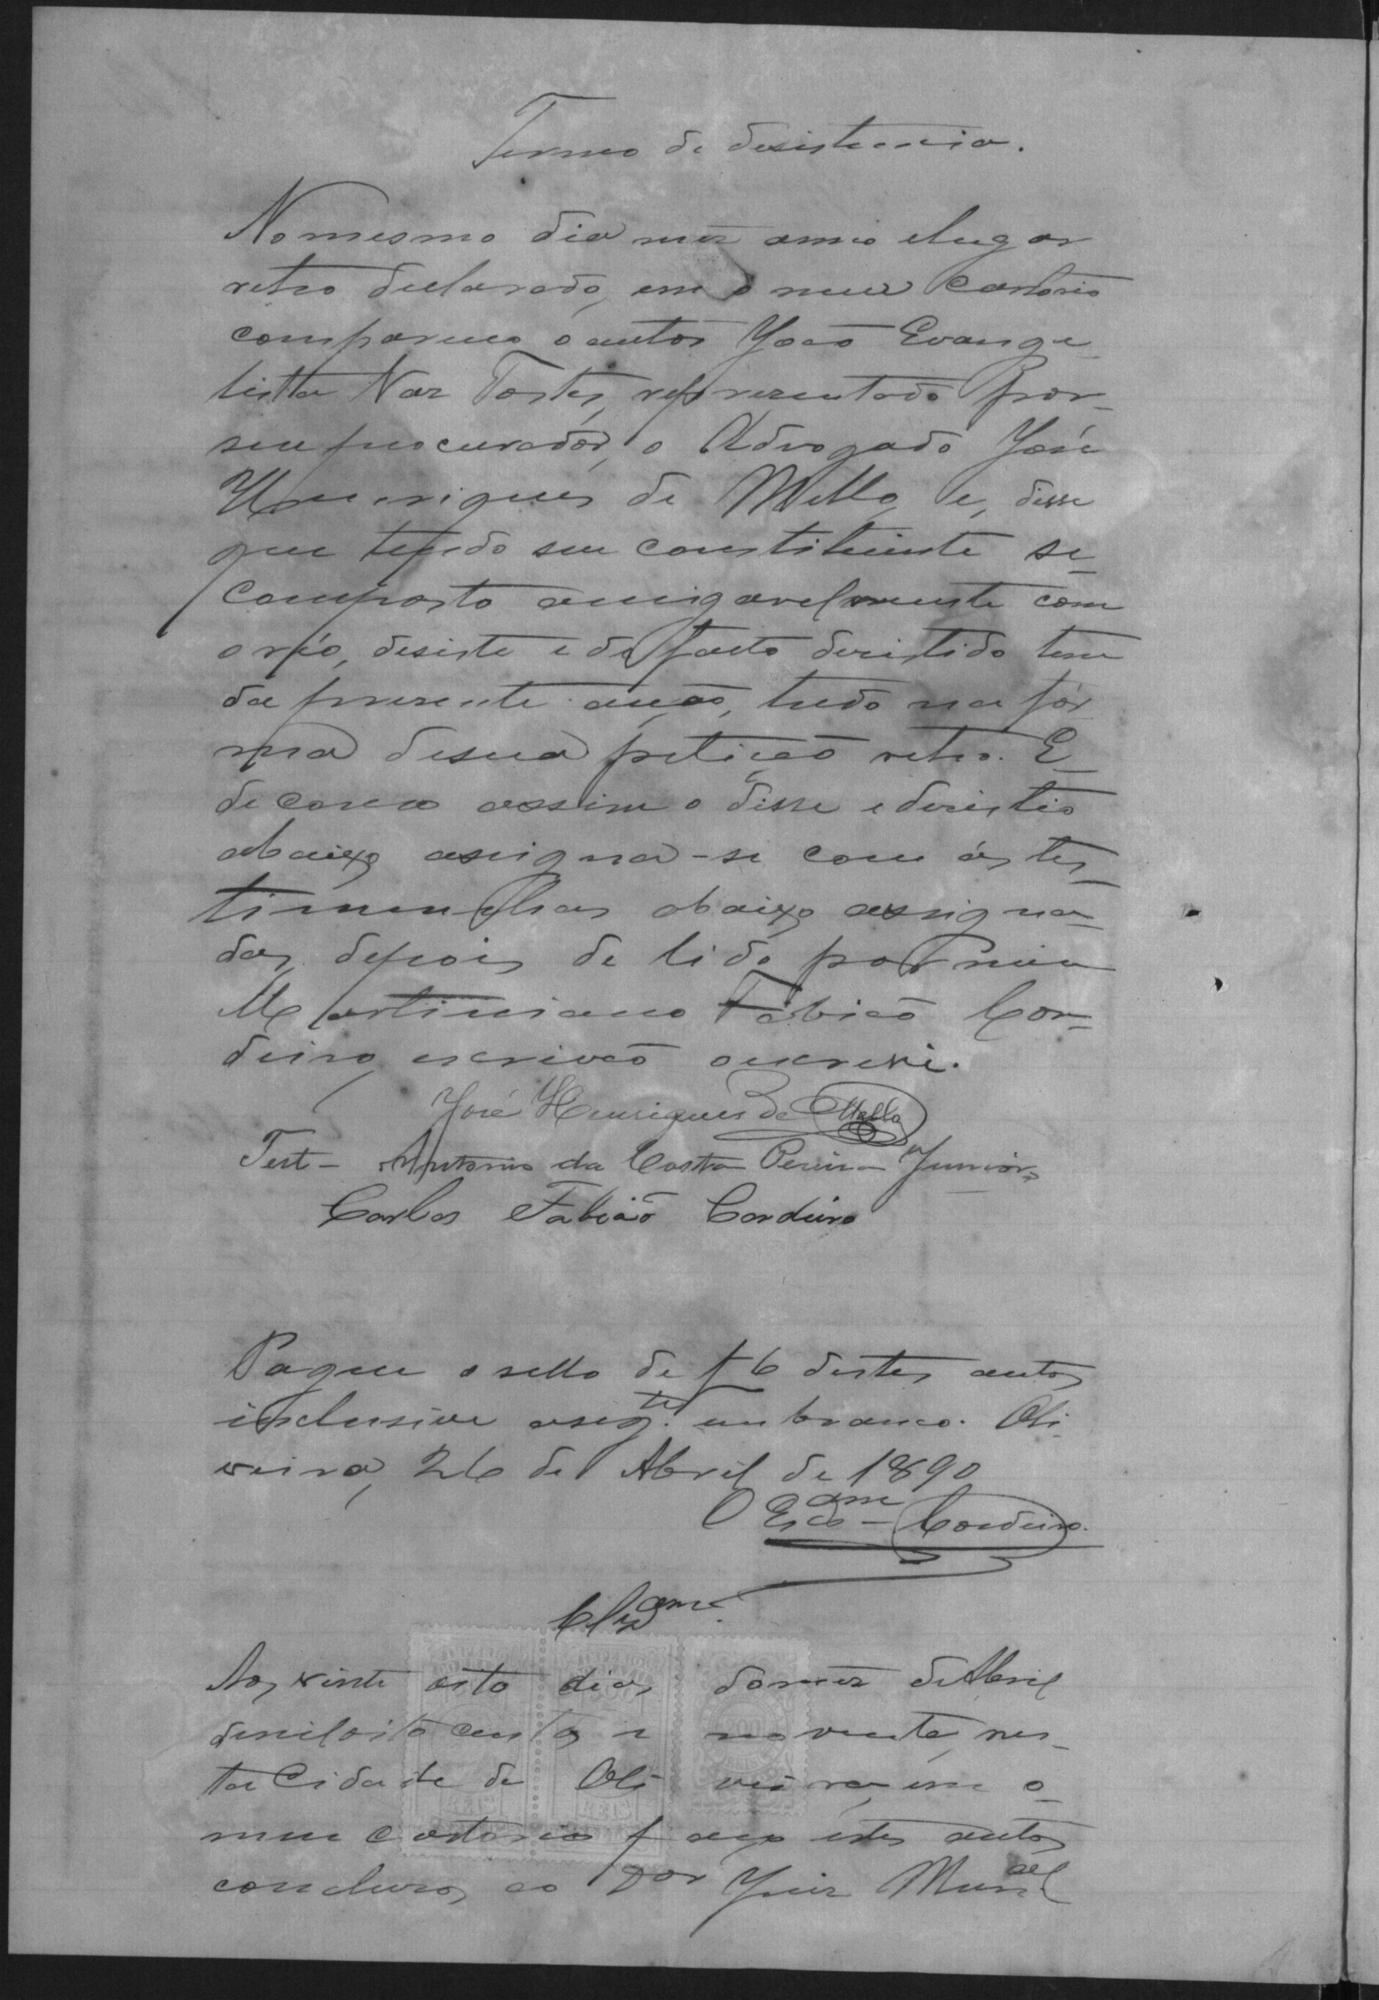 Termo de desistencia.
No mesmo dia mez anno e lugar
retro declarado, em o meu cartorio
compareceo o autor João Evange
lista Vaz Tostes, representado por
seu procurador, o Advogado José
Henriques de Mello, e, disse
que tendo seu constituinte se
composto amigavelmente com
o réo, desiste e de facto desistido tem
da presente acção, tudo na for
ma de sua petição retro. E
de como assim o disse e desistio
abaixo assigna-se com as tes
timunhas abaixo assigna
das depois de lido por mim
Martiniano Fabião Cor
deiro, escrivão o escrevi.
José Henriques de Mello
Test- Antonio da Costa Pereira Junior
Carlos Fabião Cordeiro
Pague o sello de f 6 destes autos
inclusive a seg.te em branco. Oli
veira, 26 de Abril de 1890
O Escam- Cordeiro.
Clzam.
Aos vinte oito dias do mez de Abril
de mil oito centos e noventa, nes
ta Cidade de Oliveira, em o
meu cartorio faço estes autos
concluzos ao Dor Juiz Munal